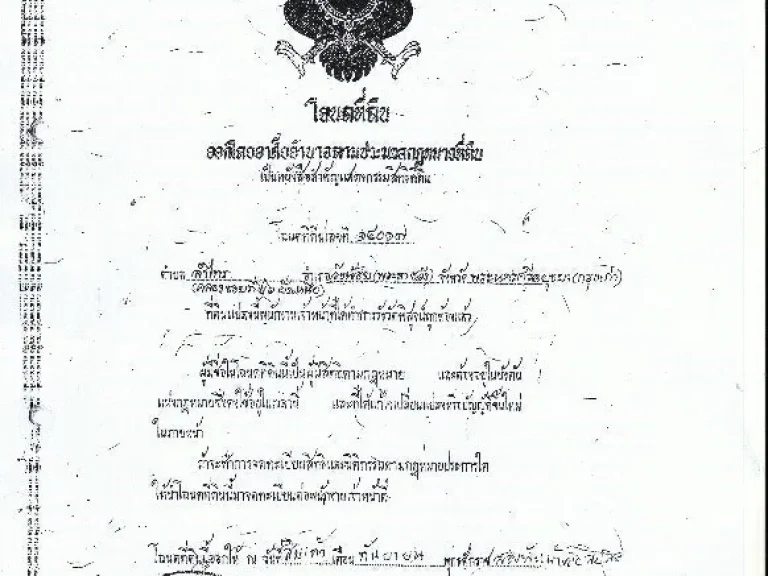 โฉนดที่ดิน
ออกโดยอาศัยอำนาจตามประมวลกฎหมายที่ดิน
เป็นหนังสือสำคัญแสดงกรรมสิทธิ์ที่ดิน
โฉนดที่ดินเลขที่ ๑๔๐๑๗
ตำบล ลำไทร อำเภอ วังน้อย จังหวัด พระนครศรีอยุธยา (กรุงเก่า)
ที่ดินแปลงนี้พนักงานเจ้าหน้าที่ได้ทำการรังวัดพิสูจน์ถูกต้องแล้ว
ผู้มีชื่อในโฉนดที่ดินนี้เป็นผู้มีสิทธิตามกฎหมาย และต้องอยู่ในบังคับ
แห่งกฎหมายซึ่งคงใช้อยู่ในเวลานี้ และที่ได้แก้ไขเปลี่ยนแปลงหรือบัญญัติขึ้นใหม่
ในภายหน้า
ถ้าจะทำการจดทะเบียนสิทธิและนิติกรรมตามกฎหมายประการใด
ให้นำโฉนดที่ดินนี้มาจดทะเบียนต่อพนักงานเจ้าหน้าที่
โฉนดที่ดินนี้ออกให้ ณ วันที่ สิบเก้า เดือน กันยายน พุทธศักราช